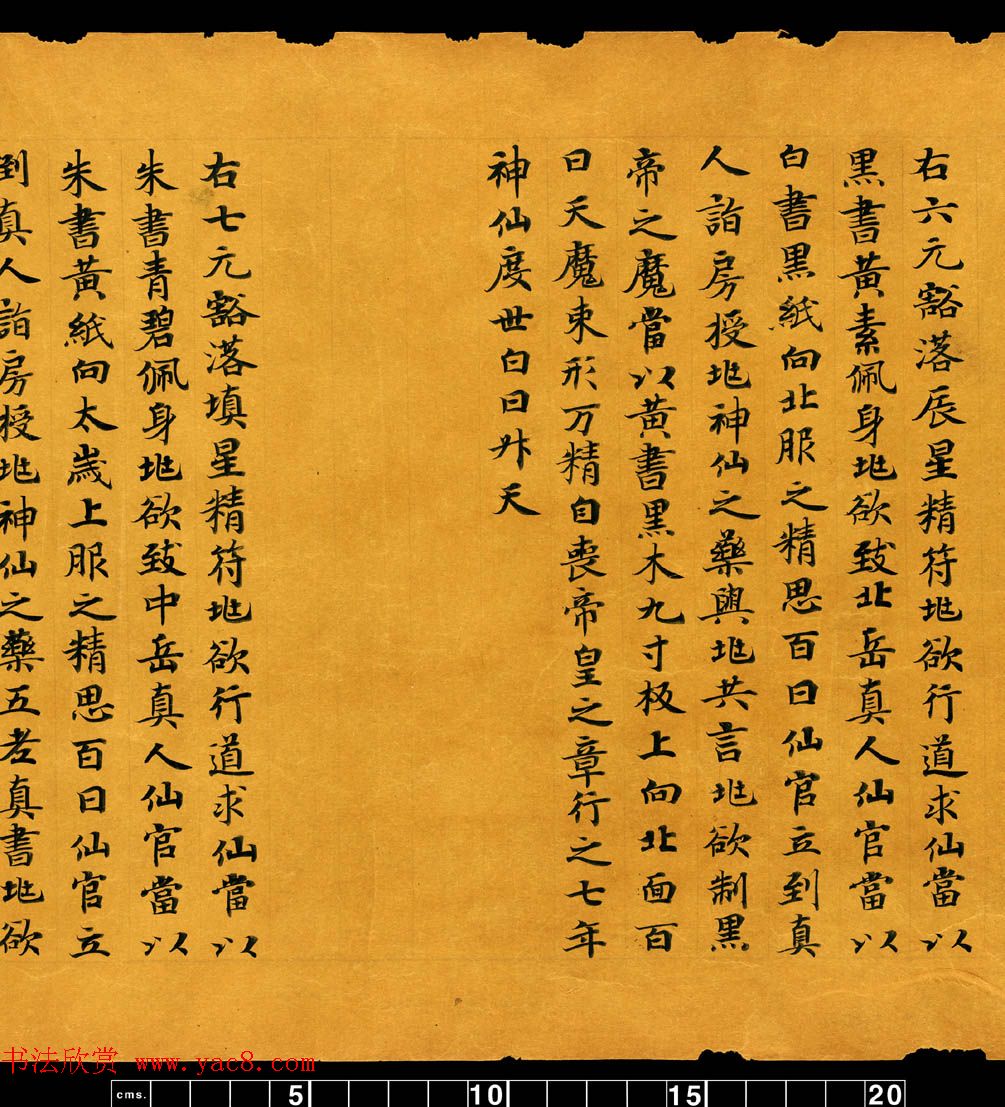 右六元豁落辰星精符兆欲行道求仙當以
黑書黃素佩身兆欲致北岳真人仙官當以
白書黑紙向北服之精思百日仙官立到真
人詣房授兆神仙之藥與兆共言兆欲制黑
帝之魔當以黃書黑木九寸板上向北面百
日天魔束形万精自喪帝皇之章行之七年
神仙度世白日升天
右七元豁落填星精符兆欲行道求仙當以
朱書青碧佩身兆欲致中岳真人仙官當以
朱書黃紙向太歲上服之精思百日仙官立
到真人詣房授兆神仙之藥五老真書兆欲
书法欣赏 www.yac8.com
cms. 5 10 15 20